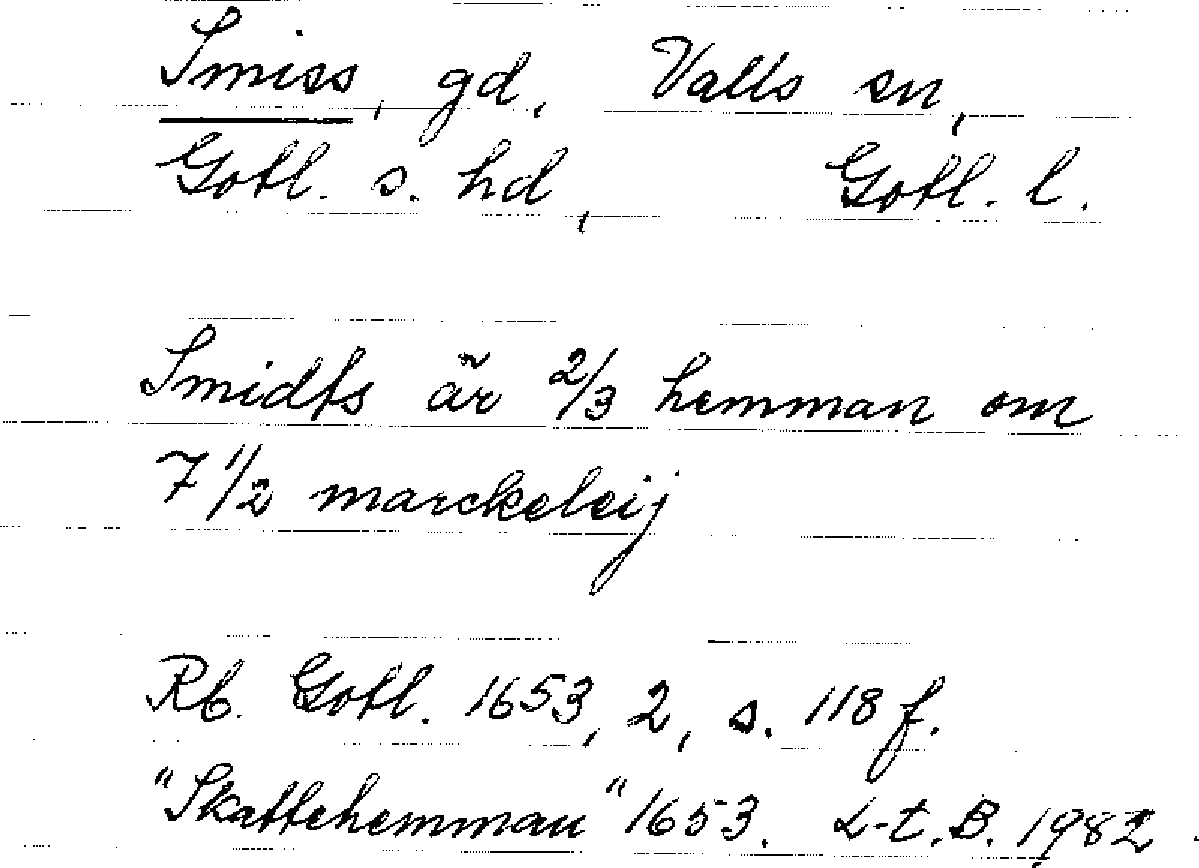 Smiss, gd, Valls sn,
Gotl. s. hd, Gotl. l.
Smidts är 2/3 hemman om
7 1/2 marckeleij
Rb. Gotl. 1653, 2, s. 118 f.
"Skattehemman" 1653. L-t. B. 1982